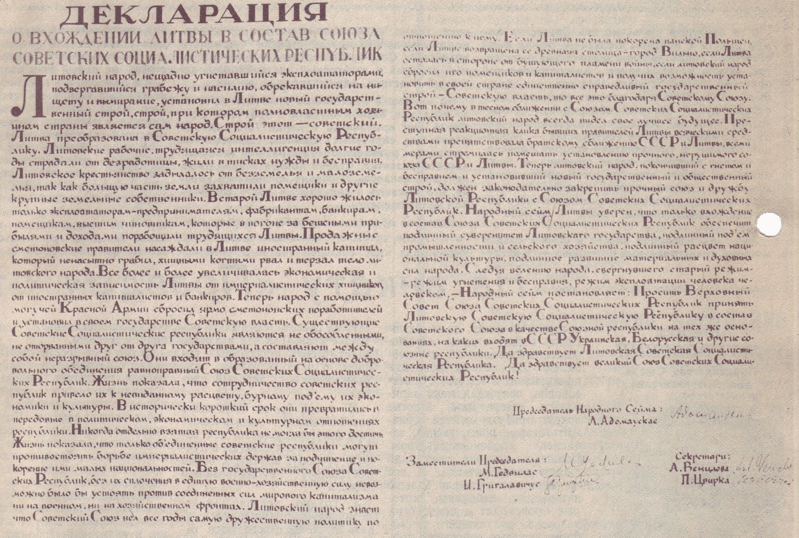 ДЕКЛАРАЦИЯ
О ВХОЖДЕНИИ ЛИТВЫ В СОСТАВ СОЮЗА
СОВЕТСКИХ СОЦИАЛИСТИЧЕСКИХ РЕСПУБЛИК
Литовский народ, нещадно угнетавшийся эксплоататорами,
подвергавшийся грабежу и насилию, обрекавшийся на ни-
щету и вымирание, установил в Литве новый государст-
венный строй, строй, при котором полновластным хозя-
ином страны является сам народ. Строй этот–советский.
Литва преобразована в Советскую Социалистическую Респуб-
лику. Литовские рабочие, трудящаяся интеллигенция долгие го-
ды страдали от безработицы, жили в тисках нужды и бесправия.
Литовское крестьянство задыхалось от безземелья и малоземе-
лья, так как большую часть земли захватили помещики и другие
крупные земельные собственники. В старой Литве хорошо жилось
только эксплоататорам-предпринимателям, фабрикантам, банкирам,
помещикам, высшим чиновникам, которые в погоне за бешеными при-
былями и доходами порабощали трудящихся Литвы. Продажные
сметоновские правители насаждали в Литве иностранный капитал,
который ненасытно грабил, хищными когтями рвал и терзал тело ли-
товского народа. Все более и более увеличивалась экономическая и
политическая зависимость Литвы от империалистических хищников,
от иностранных капиталистов и банкиров. Теперь народ с помощью
могучей Красной Армии сбросил ярмо сметоновских поработителей
и установил в своем государстве Советскую власть. Существующие
Советские Социалистические республики являются не обособленными,
не оторванными друг от друга государствами, а составляют между
собой неразрывный союз. Они входят в образованный на основе добро-
вольного объединения равноправный Союз Советских Социалистичес-
ких Республик. Жизнь показала, что сотрудничество советских рес-
публик привело их к невиданному расцвету, бурному под'ему их эко-
номики и культуры. В исторически короткий срок они превратились в
передовые в политическом, экономическом и культурном отношениях
республики. Никогда отдельно взятая республика не могла бы этого достичь.
Жизнь показала, что только об'единенные советские республики могут
противостоять борьбе империалистических держав за подчинение и по-
корение ими малых национальностей. Без государственного Союза Совет-
ских Республик, без их сплочения в единую военно-хозяйственную силу, невоз-
можно было бы устоять против соединенных сил мирового капитализма
ни на военном, ни на хозяйственном фронтах. Литовский народ знает
что Советский Союз вел все годы самую дружественную политику по
отношению к нему. Если Литва не была покорена панской Польшей,
если Литве возвращена ее древняя столица–город Вильно, если Литва
осталась в стороне от бушующего пламени войны, если литовский народ
сбросил иго помещиков и капиталистов и получил возможность уста-
новить в своей стране единственно справедливый государственный
строй–Советскую власть, то все это благодаря Советскому Союзу.
Вот почему в тесном сближении с Союзом Советских Социалистических
Республик литовский народ всегда видел свое лучшее будущее. Пре-
ступная реакционная клика бывших правителей Литвы всяческими сред-
ствами препятствовала братскому сближению СССР и Литвы, всеми
мерами стремилась помешать установлению прочного, нерушимого со-
юза СССР и Литвы. Теперь литовский народ, покончивший с гнетом и
бесправием и установивший новый государственный и общественный
строй, должен законодательно закрепить прочный союз и дружбу
Литовской Республики с Союзом Советских Социалистических
Республик. Народный сейм Литвы уверен, что только вхождение
в состав Союза Советских Социалистических Республик обеспечит
подлинный суверенитет Литовского государства, подлинный под'ем
промышленности и сельского хозяйства, подлинный расцвет наци-
ональной культуры, подлинное развитие материальных и духовных
сил народа. Следуя велению народа, свергнувшего старый режим–
–режим угнетения и бесправия, режим эксплоатации человека че-
ловеком,–Народный сейм постановляет: Просить Верховный
Совет Союза Советских Социалистических Республик принять
Литовскую Советскую Социалистическую Республику в состав
Советского Союза в качестве Союзной республики на тех же осно-
ваниях, на каких входят в СССР Украинская, Белорусская и другие со-
юзные республики. Да здравствует Литовская Советская Социалисти-
ческая Республика. Да здравствует великий Союз Советских Социали-
стических Республик!
Председатель Народного Сейма:
Л. Адомаускас
Заместители Председателя:
М. Гедвилас
И. Григалавичус
Секретари:
А. Венцлова
П. Цвирка